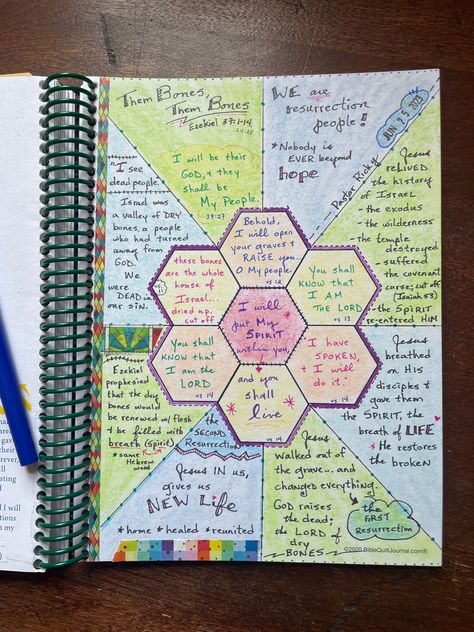 Them Bones,
Them Bones
Ezekiel 37:1-14
WE are
resurrection
people!
* Nobody is
EVER beyond
hope
JUN 25 2023
Pastor Ricky
"I see
dead people."
Israel was
a valley of DRY
bones, a people
who had turned
away from
GOD.
We
were
DEAD in
our sin.
I will be their
GOD, & they
shall be
My People.
37:27
Jesus
reLIVED
the history
of Israel
- the exodus
- the wilderness
- the temple
destroyed
- suffered
the covenant
curse; cut off
(Isaiah 53)
- the SPIRIT
re-entered HIM
Behold,
I will open
your graves +
RAISE you...
O My people.
vs 12
these bones
are the whole
house of
Israel...
dried up,
cut off
vs 11
You shall
KNOW that
I AM
THE LORD
vs 13
I will
put My
SPIRIT
within you
You shall
KNOW that
I am the
LORD
vs 14
I have
SPOKEN,
+ I will
do it.
vs 14
and you
shall
live
vs 14
Ezekiel
prophesied
that the dry
bones would
be renewed w/ flesh
+ be filled with
breath (spirit)
* same Hebrew
word
the
SECOND
Resurrection
Jesus IN us,
gives us
NEW Life
* home * healed * reunited
Jesus
walked out
of the
grave... and
changed everything.
GOD raises
the dead;
the LORD of
dry
BONES
the
FIRST
Resurrection
Jesus
breathed
on His
disciples +
gave them
the SPIRIT, the
breath of LIFE
He restores
the broken
©2020 BibleQuiltJournal.com®